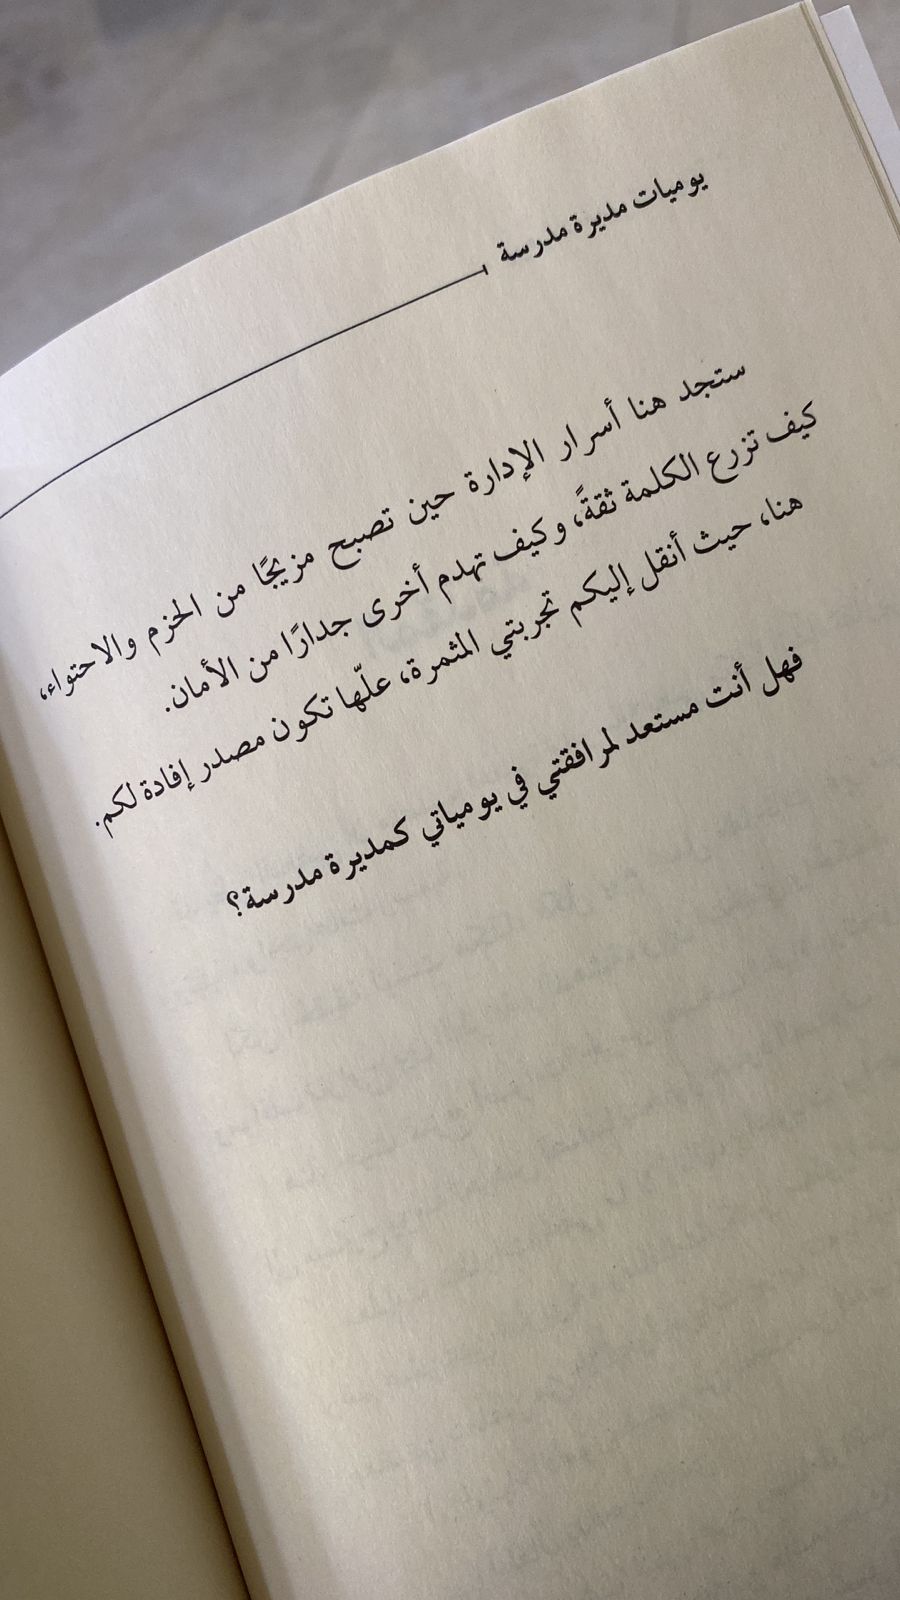 يوميات مديرة مدرسة
ستجد هنا أسرار الإدارة حين تصبح مزيجًا من الحزم والاحتواء،
كيف تزرع الكلمة ثقةً، وكيف تهدم أخرى جدارًا من الأمان.
هنا، حيث أنقل إليكم تجربتي المثمرة، علّها تكون مصدر إفادة لكم.
فهل أنت مستعد لمرافقتي في يومياتي كمديرة مدرسة؟